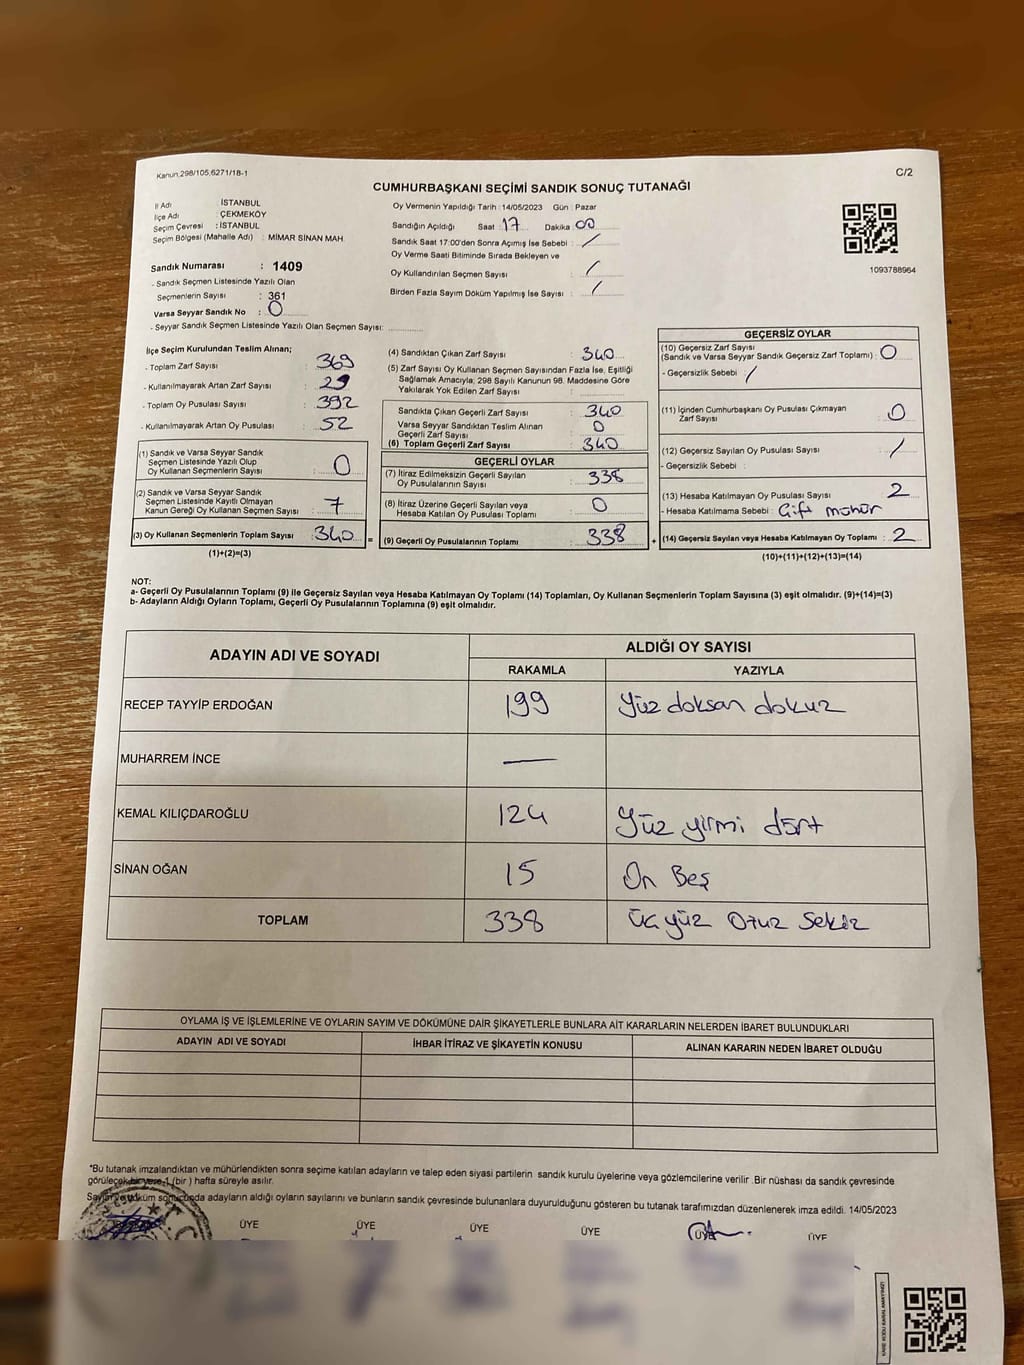 Kanun,298/105,6271/18-1
C/2
CUMHURBAŞKANI SEÇİMİ SANDIK SONUÇ TUTANAĞI
İl Adı : İSTANBUL
İlçe Adı : ÇEKMEKÖY
Seçim Çevresi : İSTANBUL
Seçim Bölgesi (Mahalle Adı) : MİMAR SİNAN MAH.
Sandık Numarası : 1409
- Sandık Seçmen Listesinde Yazılı Olan
Seçmenlerin Sayısı : 361
Varsa Seyyar Sandık No : 0
- Seyyar Sandık Seçmen Listesinde Yazılı Olan Seçmen Sayısı:
Oy Vermenin Yapıldığı Tarih : 14/05/2023 Gün : Pazar
Sandığın Açıldığı Saat : 17 Dakika : 00
Sandık Saat 17:00'den Sonra Açımış İse Sebebi : /
Oy Verme Saati Bitiminde Sırada Bekleyen ve
Oy Kullandırılan Seçmen Sayısı : /
Birden Fazla Sayım Döküm Yapılmış İse Sayısı : /
1093788964
İlçe Seçim Kurulundan Teslim Alınan;
- Toplam Zarf Sayısı : 369
- Kullanılmayarak Artan Zarf Sayısı : 29
- Toplam Oy Pusulası Sayısı : 392
- Kullanılmayarak Artan Oy Pusulası : 52
(1) Sandık ve Varsa Seyyar Sandık
Seçmen Listesinde Yazılı Olup
Oy Kullanan Seçmenlerin Sayısı : 0
(2) Sandık ve Varsa Seyyar Sandık
Seçmen Listesinde Kayıtlı Olmayan
Kanun Gereği Oy Kullanan Seçmen Sayısı : 7
(3) Oy Kullanan Seçmenlerin Toplam Sayısı : 340
(1)+(2)=(3)
=
(4) Sandıktan Çıkan Zarf Sayısı : 340
(5) Zarf Sayısı Oy Kullanan Seçmen Sayısından Fazla İse, Eşitliği
Sağlamak Amacıyla; 298 Sayılı Kanunun 98. Maddesine Göre
Yakılarak Yok Edilen Zarf Sayısı :
Sandıkta Çıkan Geçerli Zarf Sayısı : 340
Varsa Seyyar Sandıktan Teslim Alınan
Geçerli Zarf Sayısı : 0
(6) Toplam Geçerli Zarf Sayısı : 340
GEÇERLİ OYLAR
(7) İtiraz Edilmeksizin Geçerli Sayılan
Oy Pusulalarının Sayısı : 338
(8) İtiraz Üzerine Geçerli Sayılan veya
Hesaba Katılan Oy Pusulası Toplamı : 0
(9) Geçerli Oy Pusulalarının Toplamı : 338
+
GEÇERSİZ OYLAR
(10) Geçersiz Zarf Sayısı
(Sandık ve Varsa Seyyar Sandık Geçersiz Zarf Toplamı) : 0
- Geçersizlik Sebebi : /
(11) İçinden Cumhurbaşkanı Oy Pusulası Çıkmayan
Zarf Sayısı : 0
(12) Geçersiz Sayılan Oy Pusulası Sayısı : /
- Geçersizlik Sebebi :
(13) Hesaba Katılmayan Oy Pusulası Sayısı : 2
- Hesaba Katılmama Sebebi : Çift mühür
(14) Geçersiz Sayılan veya Hesaba Katılmayan Oy Toplamı : 2
(10)+(11)+(12)+(13)=(14)
NOT:
a- Geçerli Oy Pusulalarının Toplamı (9) ile Geçersiz Sayılan veya Hesaba Katılmayan Oy Toplamı (14) Toplamları, Oy Kullanan Seçmenlerin Toplam Sayısına (3) eşit olmalıdır. (9)+(14)=(3)
b- Adayların Aldığı Oyların Toplamı, Geçerli Oy Pusulalarının Toplamına (9) eşit olmalıdır.
ADAYIN ADI VE SOYADI
ALDIĞI OY SAYISI
RAKAMLA
YAZIYLA
RECEP TAYYİP ERDOĞAN 199 Yüz doksan dokuz
MUHARREM İNCE —
KEMAL KILIÇDAROĞLU 124 Yüz yirmi dört
SİNAN OĞAN 15 On Beş
TOPLAM 338 Üç yüz Otuz Sekiz
OYLAMA İŞ VE İŞLEMLERİNE VE OYLARIN SAYIM VE DÖKÜMÜNE DAİR ŞİKAYETLERLE BUNLARA AİT KARARLARIN NELERDEN İBARET BULUNDUKLARI
ADAYIN ADI VE SOYADI
İHBAR İTİRAZ VE ŞİKAYETİN KONUSU
ALINAN KARARIN NEDEN İBARET OLDUĞU
*Bu tutanak imzalandıktan ve mühürlendikten sonra seçime katılan adayların ve talep eden siyasi partilerin sandık kurulu üyelerine veya gözlemcilerine verilir .Bir nüshası da sandık çevresinde
görülecek bir yere 1 (bir ) hafta süreyle asılır.
Sayım ve döküm sonucunda adayların aldığı oyların sayılarını ve bunların sandık çevresinde bulunanlara duyurulduğunu gösteren bu tutanak tarafımızdan düzenlenerek imza edildi. 14/05/2023
ÜYE ÜYE ÜYE ÜYE ÜYE ÜYE